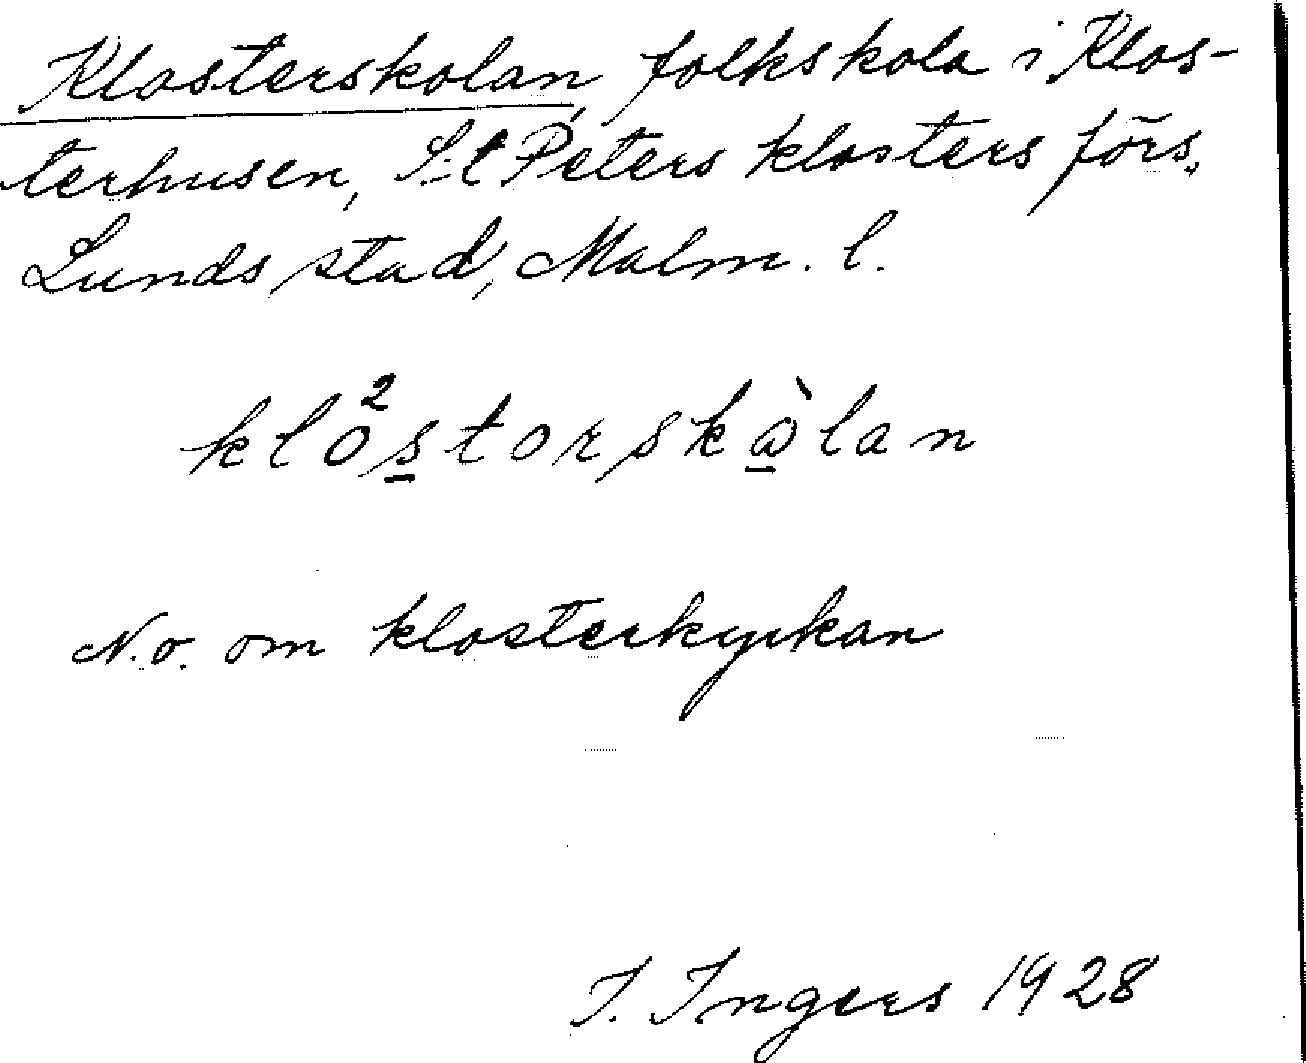 Klosterskolan, folkskola i Klos-
terhusen, S:t Peters klosters förs.
Lunds stad, Malm. l.
klo²storskòlan
N.o. om klosterkyrkan
I. Ingers 1928